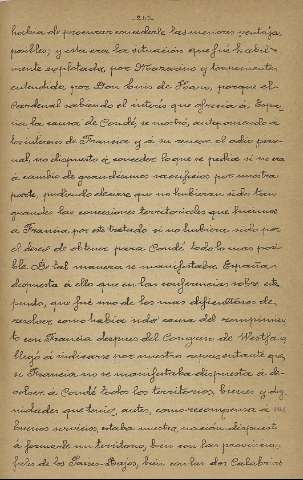 habia de procurar concederle las mayores ventajas
posibles; y esta era la situación que fué habil-
mente explotada, por Mazarino y torpemente
entendida, por Don Luis de Haro, porque el
Cardenal sabiendo el interés que ofrecia á Espa-
ña la causa de Condé, se mostró, anteponiendo á
los intereses de Francia y á su amor el odio perso-
nal, no dispuesto á conceder lo que se pedia si no era
á cambio de grandísimos sacrificios por nuestra
parte, pudiendo decirse que no hubieran sido tan
grandes las concesiones territoriales que hicimos
á Francia por este tratado si no hubiera sido por
el deseo de obtener para Condé todo lo mas posi-
ble. De tal manera se manifestaba España
dispuesta á ello que en las conferencias sobre este
punto, que fué uno de los mas dificultosos de
resolver como habia sido causa del rompimien-
to con Francia despues del Congreso de Westfalia
llegó á indicarse por nuestro representante que
si Francia no se manifestaba dispuesta á de-
volver á Condé todos los territorios, bienes y dig-
nidades que tenia, antes, como recompensa á sus
buenos servicios, estaba nuestra nación dispuesta
á formarle un territorio, bien con las provincias
fieles de los Paises-Bajos, bien con las dos Calabrias